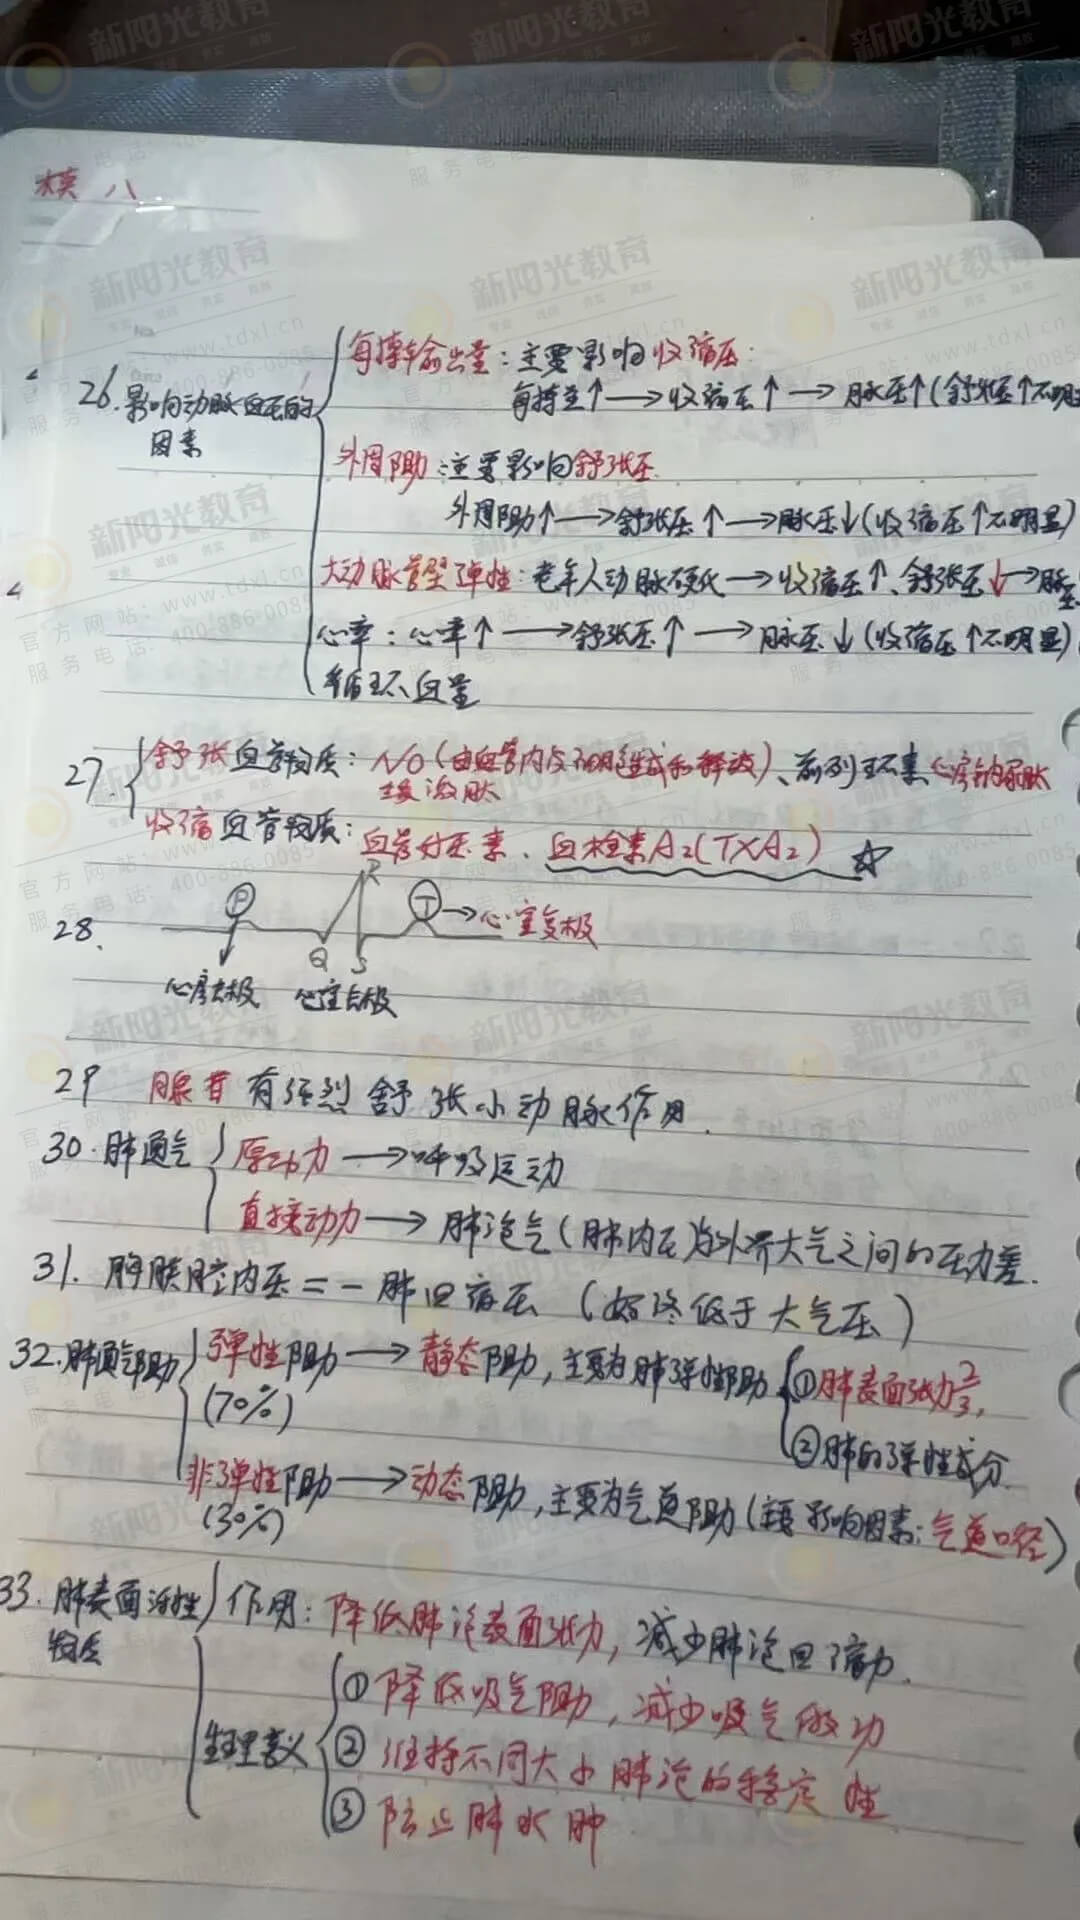 模八
26.影响动脉血压的因素
每搏输出量：主要影响收缩压：
每搏量↑→收缩压↑→脉压↑(舒张压↑不明
外周阻助：主要影响舒张压.
外周阻助↑→舒张压↑→脉压↓(收缩压↑不明显)
大动脉管壁弹性：老年人动脉硬化→收缩压↑、舒张压↓→脉压
心率：心率↑→舒张压↑→脉压↓(收缩压↑不明显)
循环血量
27.
舒张血管物质：NO(由血管内皮细胞生成和释放)、前列环素 心房钠尿肽
缓激肽
收缩血管物质：血管升压素、血栓素A₂(TXA₂)☆
28.
P Q R S T→心室复极
心房去极 心室去极
29 腺苷有强烈舒张小动脉作用.
30.肺通气
原动力→呼吸运动
直接动力→肺泡气(肺内压)与外界大气之间的压力差.
31.胸膜腔内压=－肺回缩压(始终低于大气压)
32.肺通气阻助
弹性阻助→静态阻助,主要为肺弹性阻助
(70%)
①肺表面张力2/3,
②肺的弹性成分.
非弹性阻助→动态阻助,主要为气道阻助(主要影响因素:气道口径)
(30%)
33.肺表面活性物质
作用:降低肺泡表面张力,减少肺泡回缩力.
生理意义
①降低吸气阻助,减少吸气做功
②维持不同大小肺泡的稳定性
③防止肺水肿
新阳光教育
专业 诚信 务实 高效
官方网站：www.tdxl.cn
服务电话：400-886-0085